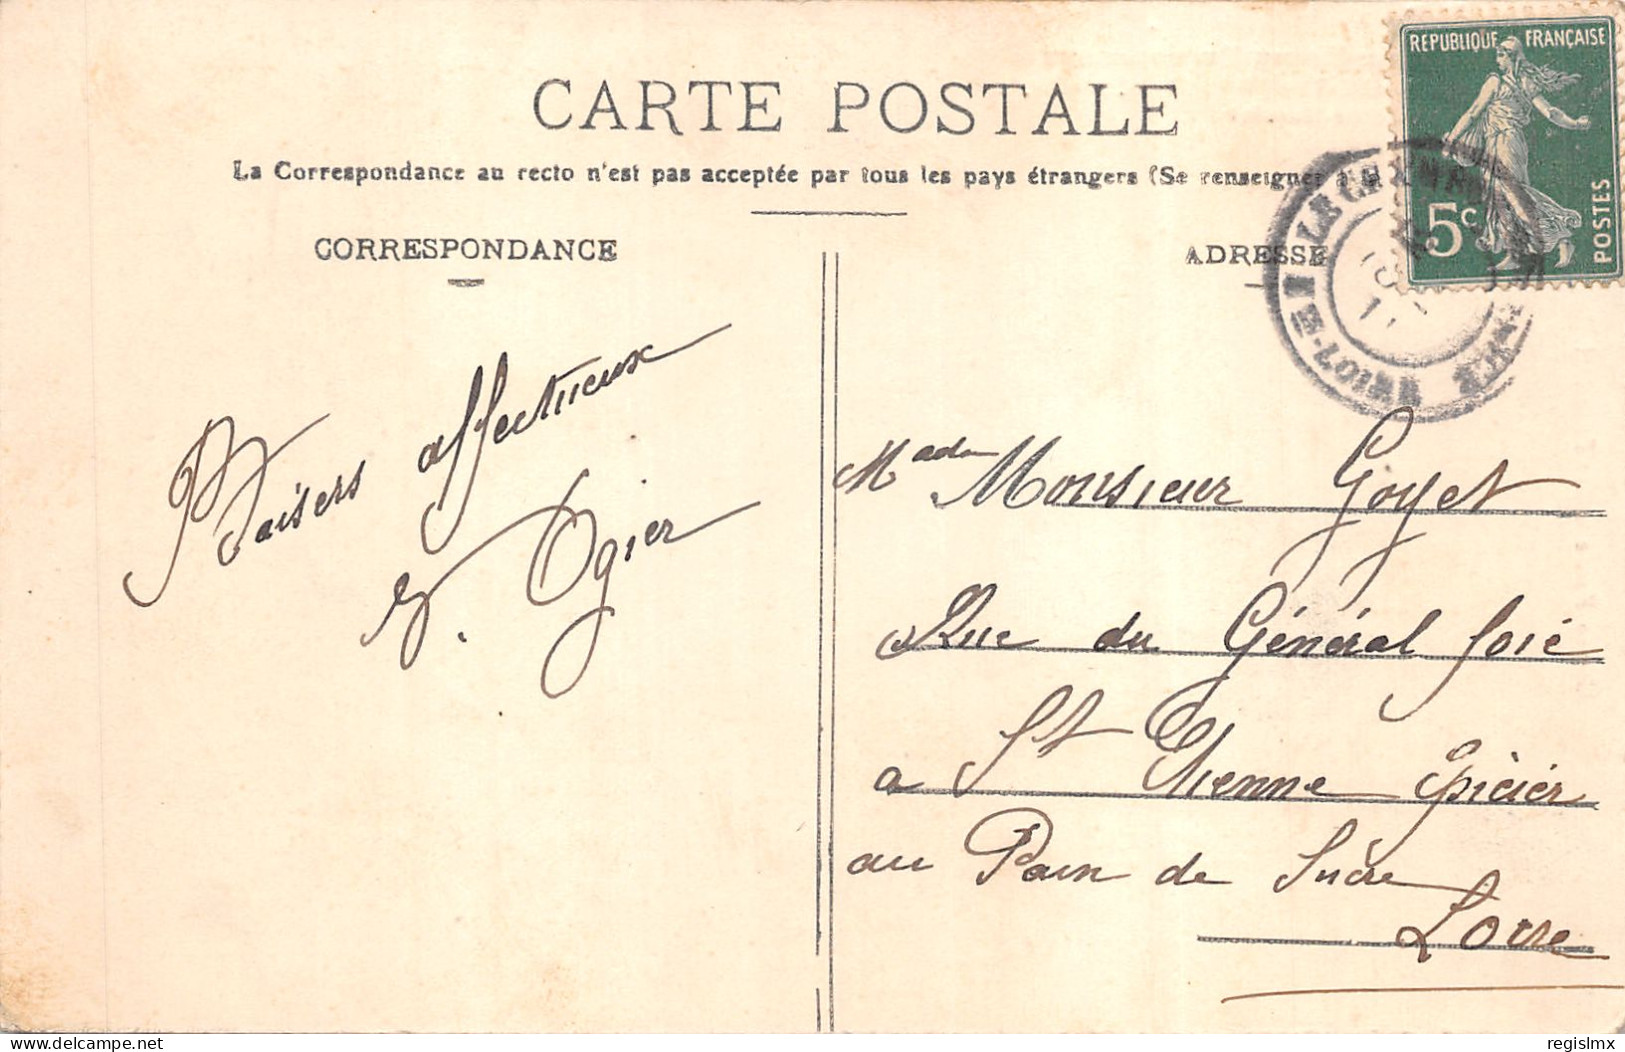 CARTE POSTALE
La Correspondance au recto n'est pas acceptée par tous les pays étrangers (Se renseigner
CORRESPONDANCE
ADRESSE
REPUBLIQUE FRANÇAISE
5c
POSTES
Baisers affectueux
Ogier
Made Monsieur Goyet
Rue du Général Foié
a St Etienne épicier
au Pain de Sucre
Loire
www.delcampe.net
regislmx